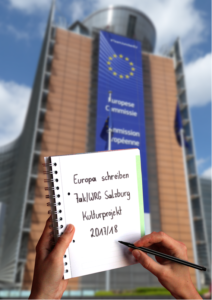 European
Commission
Commission
européenne
Europa schreiben
7ak/WRG Salzburg
Kulturprojekt
2017/18